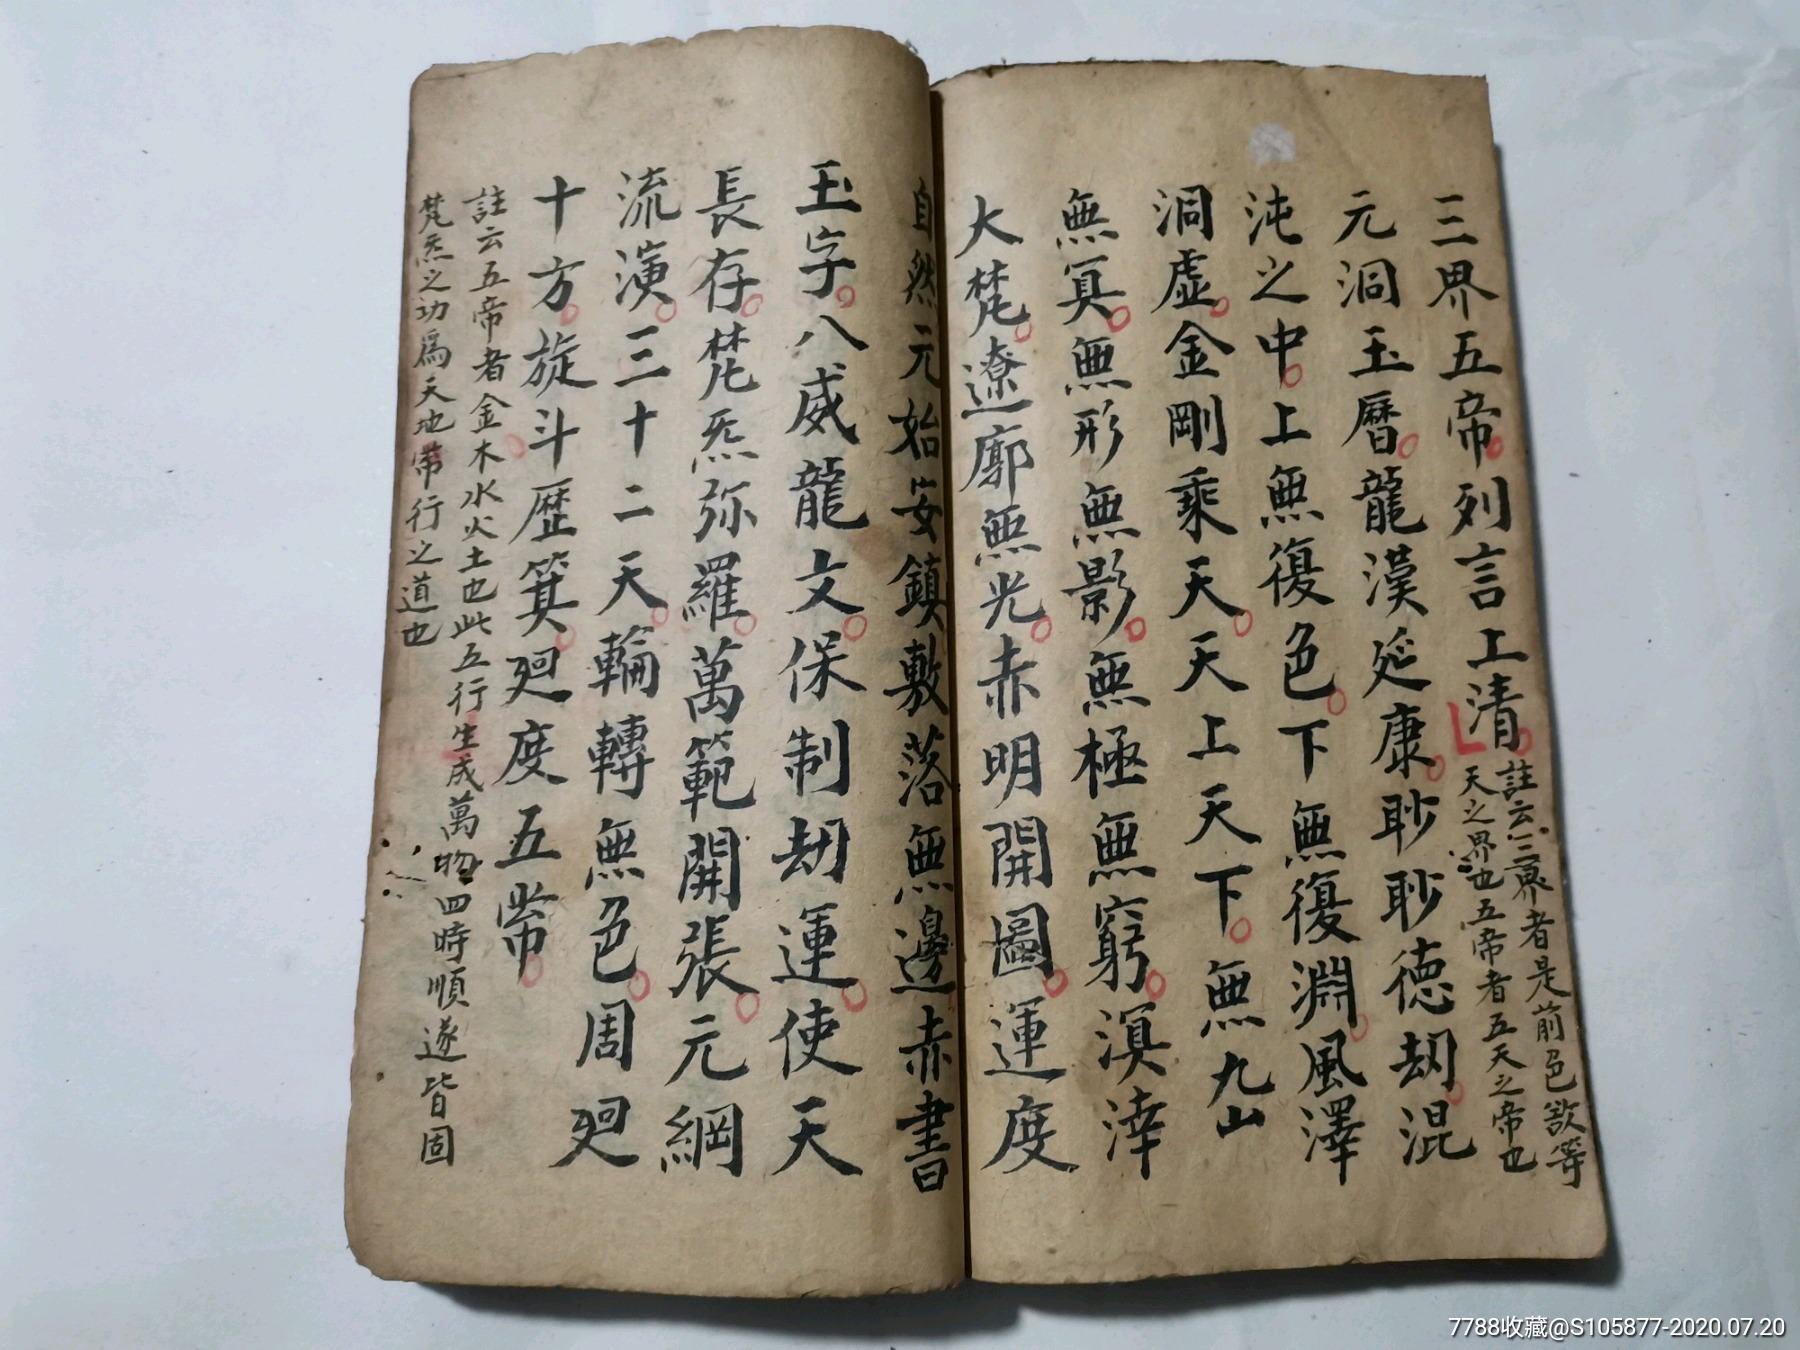 三界五帝列言上清
註云三界者是前色欲等
天之界也五帝者五天之帝也
元洞玉曆龍漢延康眇眇德劫混
沌之中上無復色下無復淵風澤
洞虛金剛乘天天上天下無九山
無冥無形無影無極無窮溟涬
大梵遼廓無光赤明開圖運度
自然元始安鎮敷落無邊赤書
玉字八威龍文保制劫運使天
長存梵炁弥羅萬範開張元綱
流演三十二天輪轉無色周廻
十方旋斗歷箕廻度五常
註云五帝者金木水火土也此五行生成萬物四時順遂皆固
梵炁之功爲天地常行之道也
7788收藏@S105877-2020.07.20